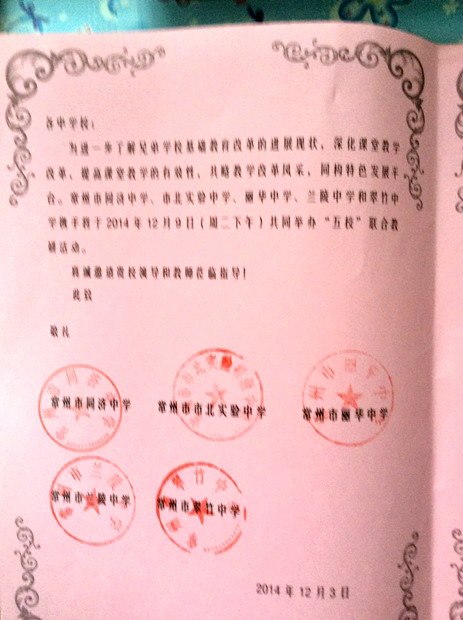 各中学校：
为进一步了解兄弟学校基础教育改革的进展现状，深化课堂教学
改革、提高课堂教学的有效性，共略教学改革风采，同构特色发展平
台。常州市同济中学、市北实验中学、丽华中学、兰陵中学和翠竹中
学携手将于2014年12月9日（周二下午）共同举办“五校”联合教
研活动。
真诚邀请贵校领导和教师莅临指导！
此致
敬礼
常州市同济中学 常州市市北实验中学 常州市丽华中学
常州市兰陵中学 常州市翠竹中学
2014年12月3日